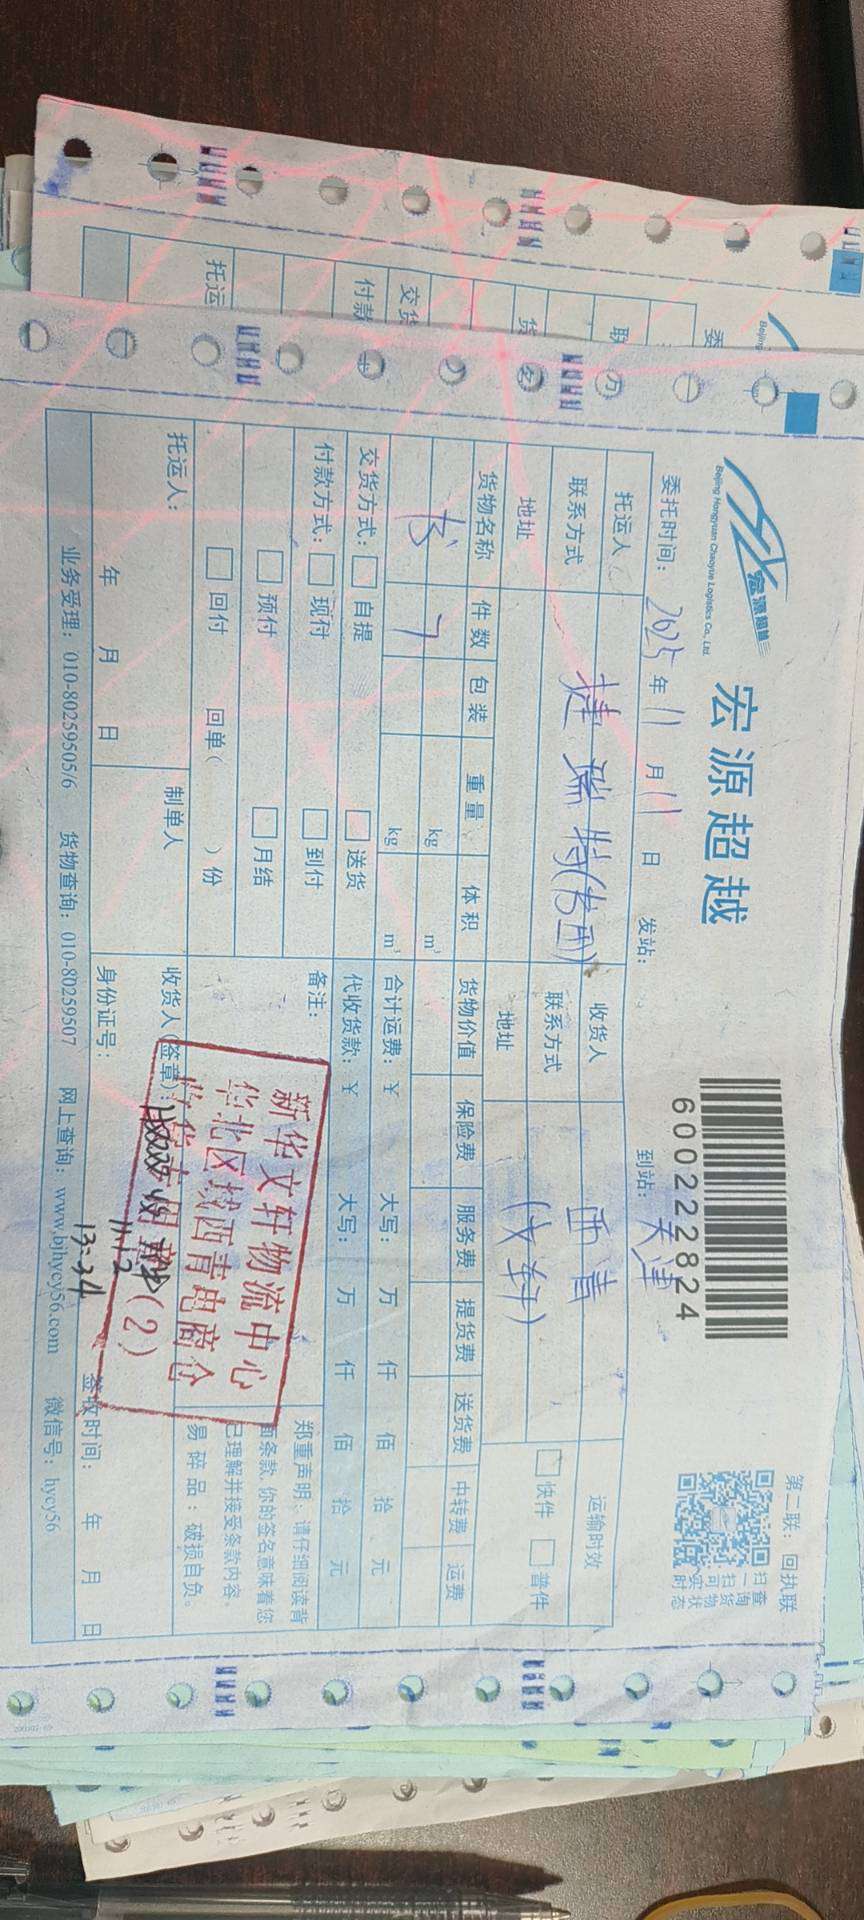 宏源超越
Beijing Hongyuan Chaoyue Logistics Co., Ltd.
宏源超越
6002222824
第二联：回执联
扫一扫 查询货物实时状态
委托时间：2025年11月11日 发站： 到站：天津
托运人 捷瑞特(书面) 收货人 西青 运输时效
联系方式 联系方式 (文轩) 快件 普件
地址 地址
货物名称 件数 包装 重量 体积 货物价值 保险费 服务费 提货费 送货费 中转费 运费
书 7 kg m³
kg m³
交货方式： 自提 送货 合计运费：￥ 大写： 万 仟 佰 拾 元
付款方式： 现付 到付 代收货款：￥ 大写： 万 仟 佰 拾 元
预付 月结 备注：
回付 回单( )份
郑重声明：请仔细阅读背面条款，你的签名意味着您已理解并接受条款内容。
易碎品：破损自负。
新华文轩物流中心
华北区域西青电商仓
收货专用章(2)
11.12
13:34
托运人： 制单人 收货人(签章)：
年 月 日 身份证号： 签收时间： 年 月 日
业务受理：010-80259505/6 货物查询：010-80259507 网上查询：www.bjhycy56.com 微信号：hycy56
Beijing
委
联
货
交货
付款
托运